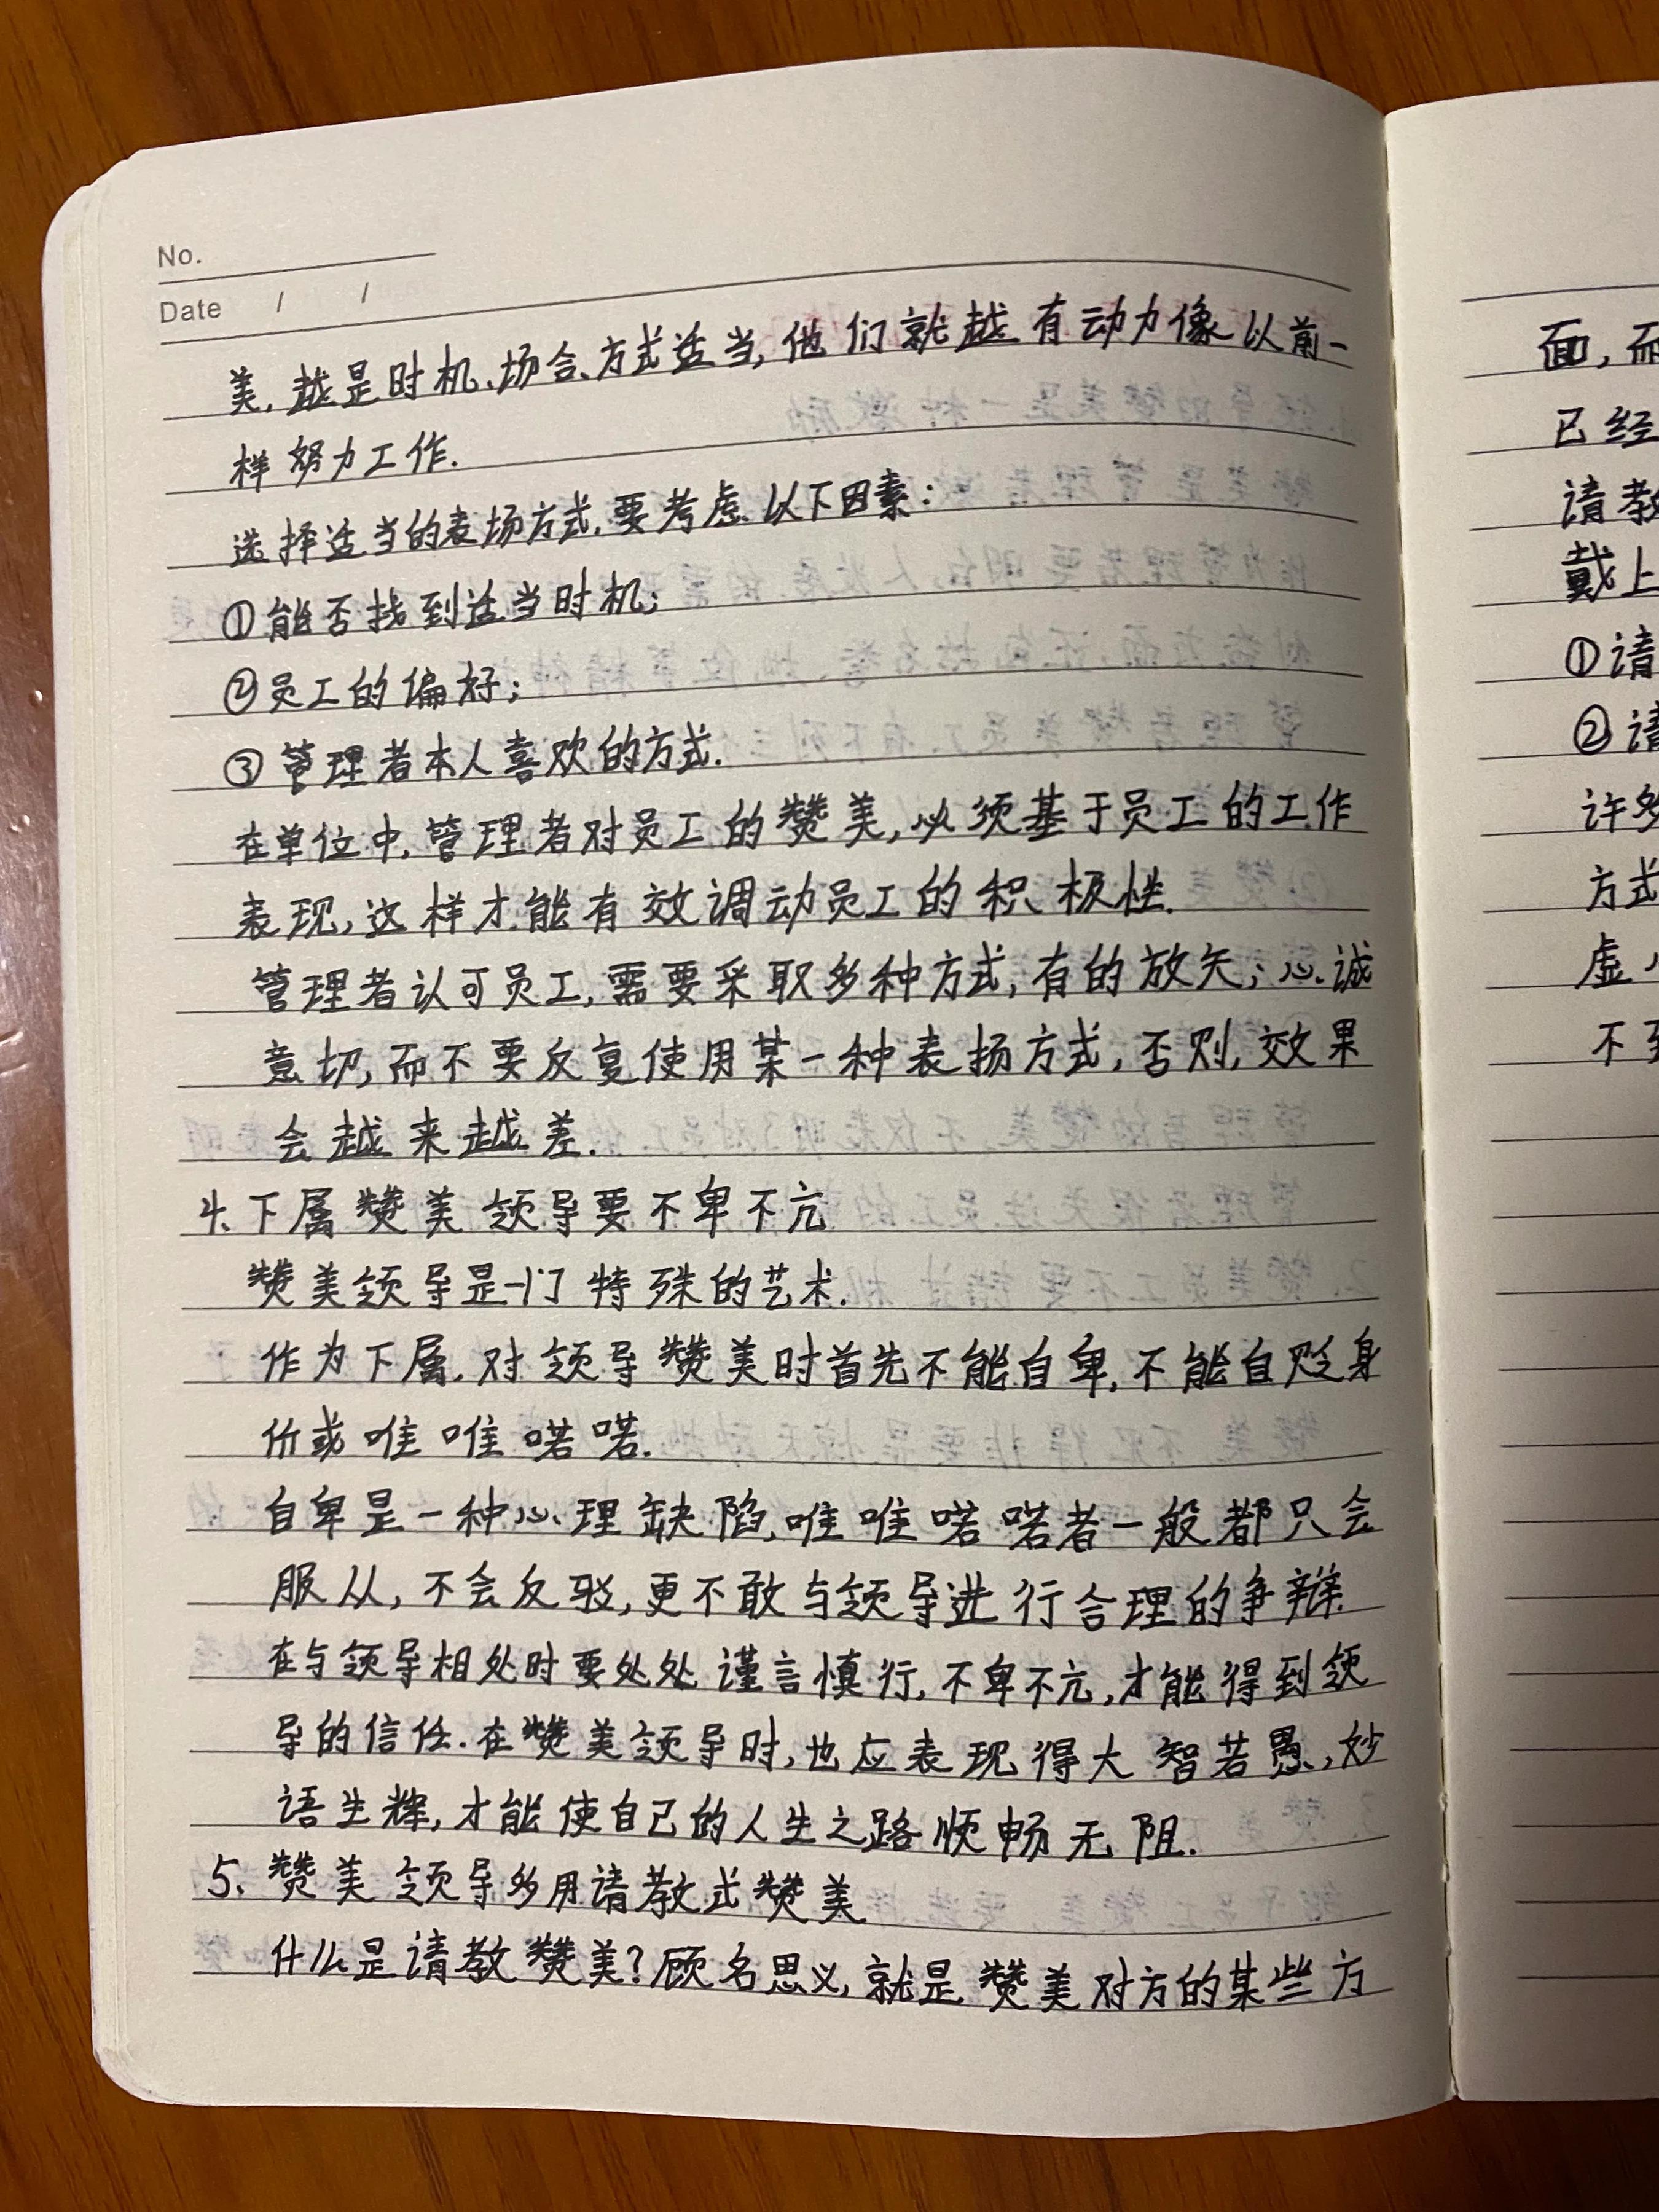 No.
Date / /
美,越是时机、场合、方式适当,他们就越有动力像以前一
样努力工作.
选择适当的表扬方式,要考虑以下因素:
①能否找到适当时机;
②员工的偏好;
③管理者本人喜欢的方式.
在单位中,管理者对员工的赞美,必须基于员工的工作
表现,这样才能有效调动员工的积极性.
管理者认可员工,需要采取多种方式,有的放矢;心诚
意切,而不要反复使用某一种表扬方式,否则,效果
会越来越差.
4.下属赞美领导要不卑不亢
赞美领导是一门特殊的艺术.
作为下属,对领导赞美时首先不能自卑,不能自贬身
价或唯唯喏喏.
自卑是一种心理缺陷,唯唯喏喏者一般都只会
服从,不会反驳,更不敢与领导进行合理的争辩.
在与领导相处时要处处谨言慎行,不卑不亢,才能得到领
导的信任.在赞美领导时,也应表现得大智若愚,妙
语生辉,才能使自己的人生之路顺畅无阻.
5、赞美领导多用请教式赞美
什么是请教赞美?顾名思义,就是赞美对方的某些方
面,而
已经
请教
戴上
①请
②请
许多
方式
虚心
不到